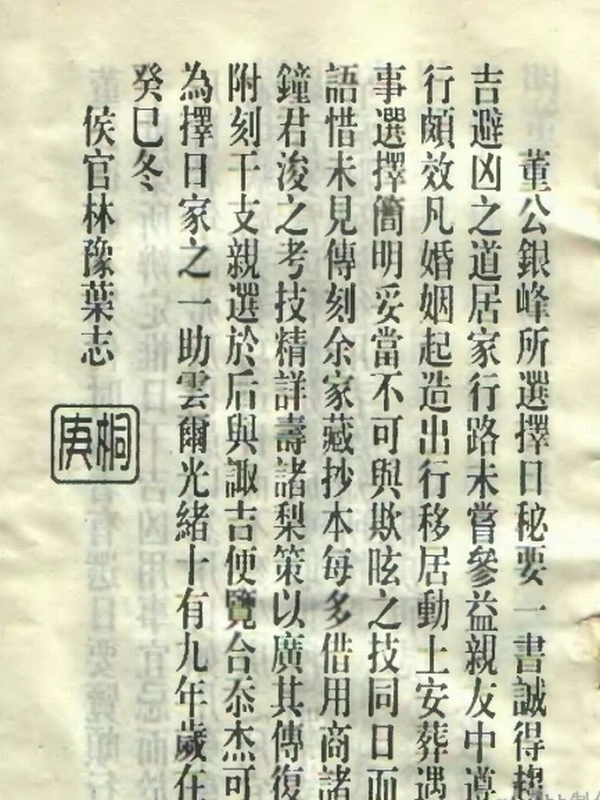 董公銀峰所選擇日秘要一書誠得趨
吉避凶之道居家行路未嘗參益親友中遵
行頗效凡婚姻起造出行移居動土安葬遇
事選擇簡明妥當不可與欺眩之技同日而
語惜未見傳刻余家藏抄本每多借用商諸
鐘君浚之考技精詳壽諸梨策以廣其傳復
附刻干支親選於后與諏吉便覽合忝杰可
為擇日家之一助雲爾光緒十有九年歲在
癸巳冬
侯官林豫葉志
桐庚